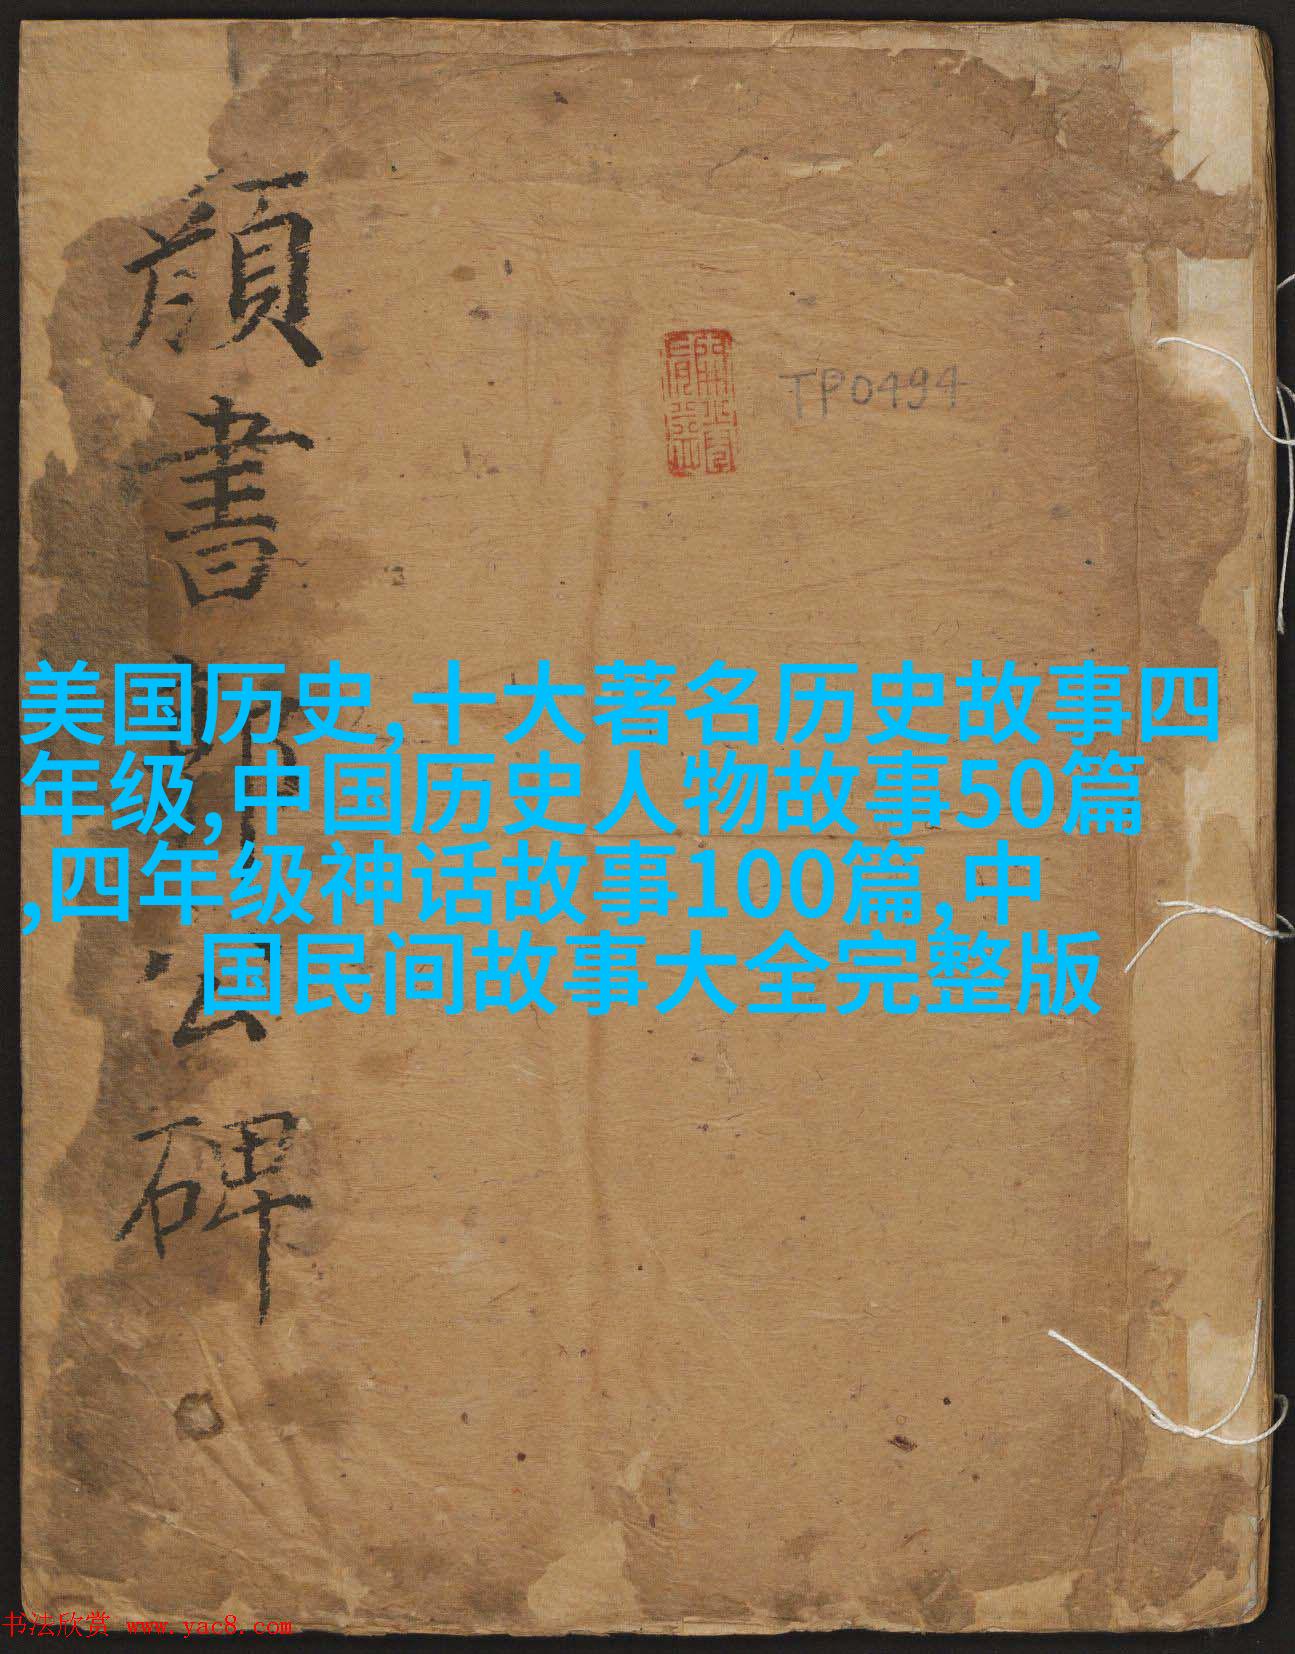 顔書
碑
TP0494
美国历史,十大著名历史故事四
年级,中国历史人物故事50篇
,四年级神话故事100篇,中
国民间故事大全完整版
书法欣赏 www.yac8.com